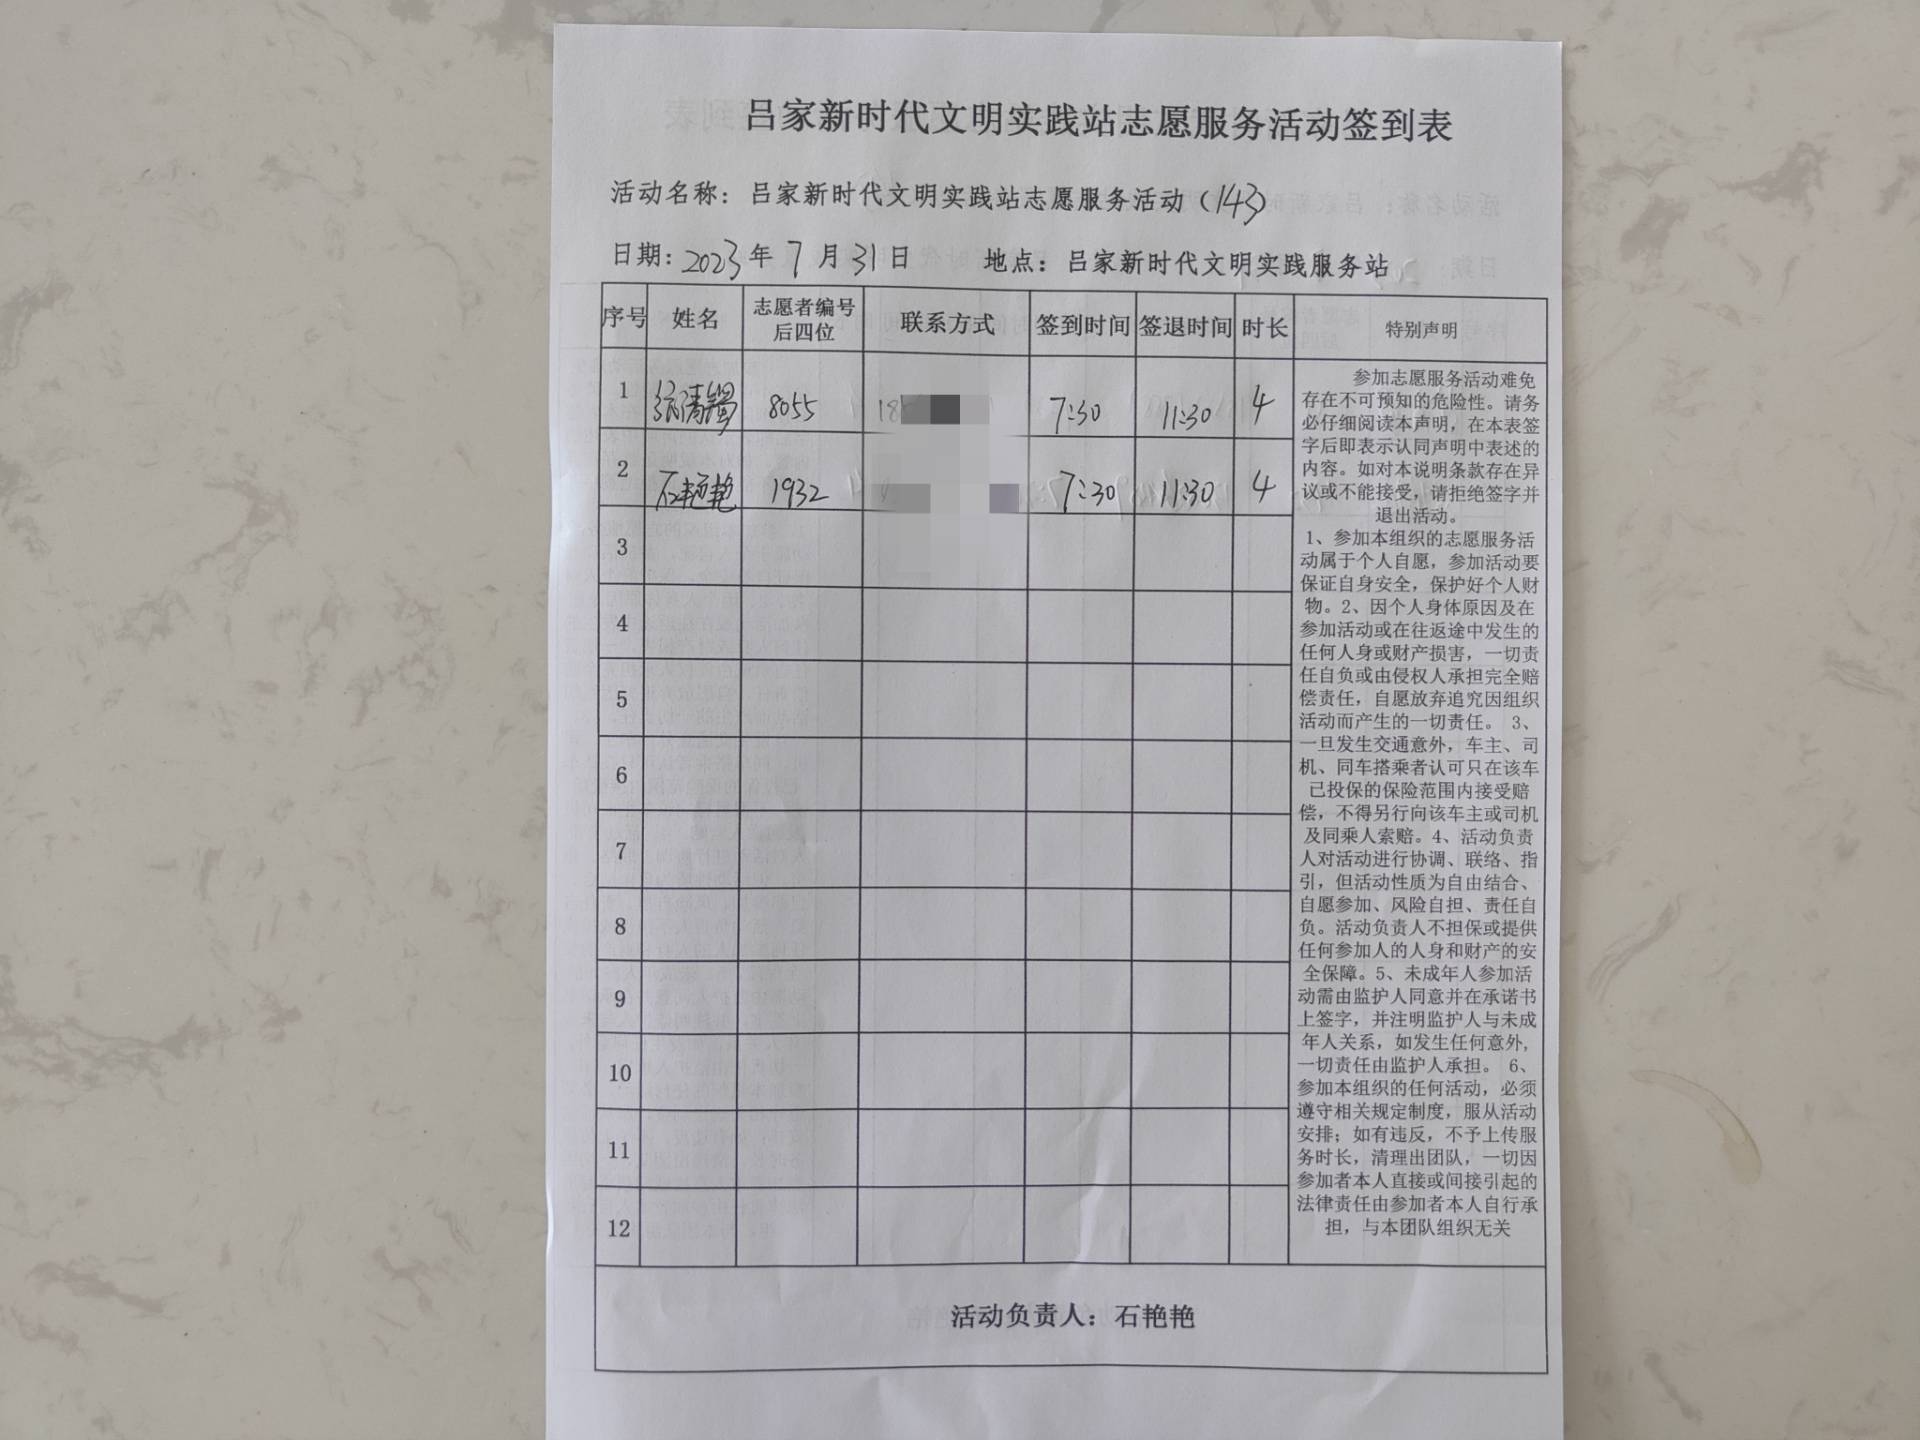 吕家新时代文明实践站志愿服务活动签到表
活动名称：吕家新时代文明实践站志愿服务活动（143）
日期：2023年7月31日 地点：吕家新时代文明实践服务站
序号 姓名 志愿者编号后四位 联系方式 签到时间 签退时间 时长 特别声明
1 8055 18 7:30 11:30 4
2 石艳艳 1932 7:30 11:30 4
3
4
5
6
7
8
9
10
11
12
参加志愿服务活动难免
存在不可预知的危险性。请务
必仔细阅读本声明，在本表签
字后即表示认同声明中表述的
内容。如对本说明条款存在异
议或不能接受，请拒绝签字并
退出活动。
1、参加本组织的志愿服务活
动属于个人自愿，参加活动要
保证自身安全，保护好个人财
物。2、因个人身体原因及在
参加活动或在往返途中发生的
任何人身或财产损害，一切责
任自负或由侵权人承担完全赔
偿责任，自愿放弃追究因组织
活动而产生的一切责任。 3、
一旦发生交通意外，车主、司
机、同车搭乘者认可只在该车
已投保的保险范围内接受赔
偿，不得另行向该车主或司机
及同乘人索赔。4、活动负责
人对活动进行协调、联络、指
引，但活动性质为自由结合、
自愿参加、风险自担、责任自
负。活动负责人不担保或提供
任何参加人的人身和财产的安
全保障。5、未成年人参加活
动需由监护人同意并在承诺书
上签字，并注明监护人与未成
年人关系，如发生任何意外，
一切责任由监护人承担。 6、
参加本组织的任何活动，必须
遵守相关规定制度，服从活动
安排；如有违反，不予上传服
务时长，清理出团队，一切因
参加者本人直接或间接引起的
法律责任由参加者本人自行承
担，与本团队组织无关
活动负责人：石艳艳